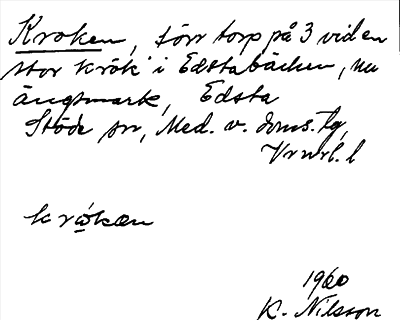 Kroken, förr torp på 3 vid en
stor krök i Edstabäcken, nu
ängsmark, Edsta
Stöde sn, Med. v. doms. tg,
Vrnrl. l
krǫ́kæn
1960
K. Nilsson